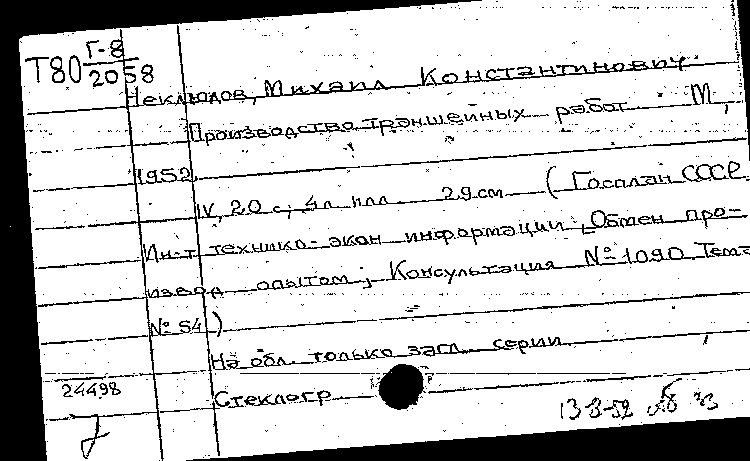 Т80 Г-8
2058
Неклюдов, Михаил Константинович.
Производство траншейных работ. М,
1952.
IV, 20 с; 4л. илл. 29см. (Госплан СССР.
Ин-т технико-экон информации; Обмен про-
извод опытом; Консультация № 1090 Тема
№ 54)
На обл. только загл. серии
24498
Стеклогр